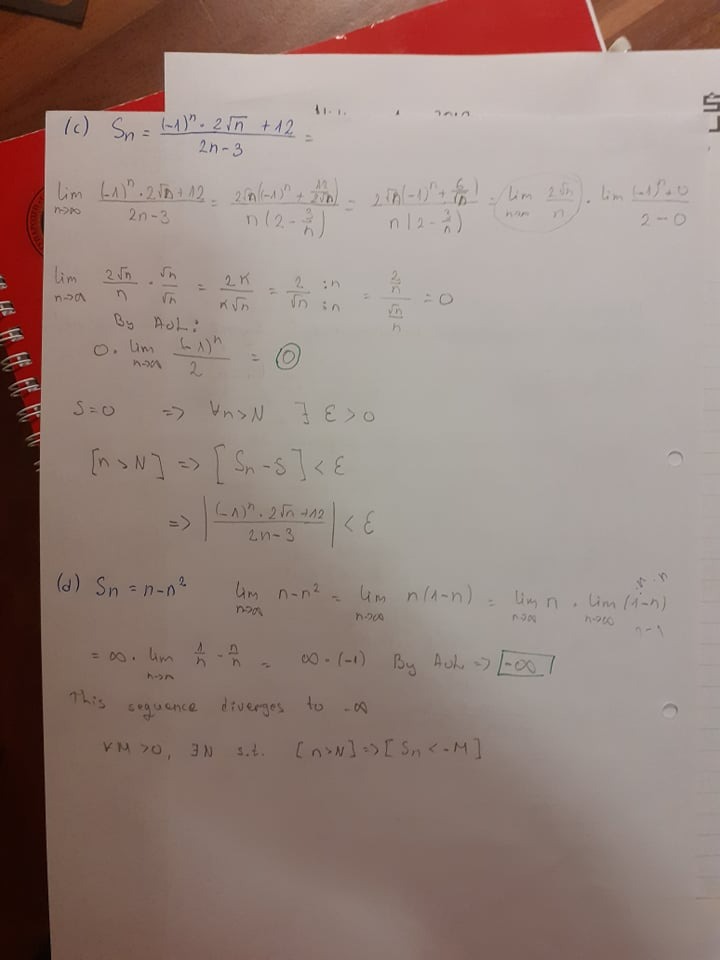 (c) Sn = (-1)^n · 2√n + 12 / 2n-3 =
lim n→∞ (-1)^n · 2√n + 12 / 2n-3 = 2√n((-1)^n + 12/2√n) / n(2 - 3/n) = 2√n((-1)^n + 6/√n) / n(2 - 3/n) = lim n→∞ 2√n / n · lim (-1)^n + 0 / 2-0
lim n→∞ 2√n / n · √n / √n = 2n / n√n = 2 / √n :n :n = 2/n / √n/n = 0
By AOL:
0 · lim n→∞ (-1)^n / 2 = 0
S=0 => ∀n>N ∃ Ɛ > 0
[n>N] => [Sn - S] < Ɛ
=> |(-1)^n · 2√n + 12 / 2n-3| < Ɛ
(d) Sn = n-n² lim n→∞ n-n² = lim n→∞ n(1-n) = lim n→∞ n · lim n→∞ (1-n) :n :n
n-1
= ∞ · lim n→∞ 1/n - n/n = ∞ · (-1) By AOL => -∞
This sequence diverges to -∞
∀M >0, ∃N s.t. [n>N] => [Sn < -M]